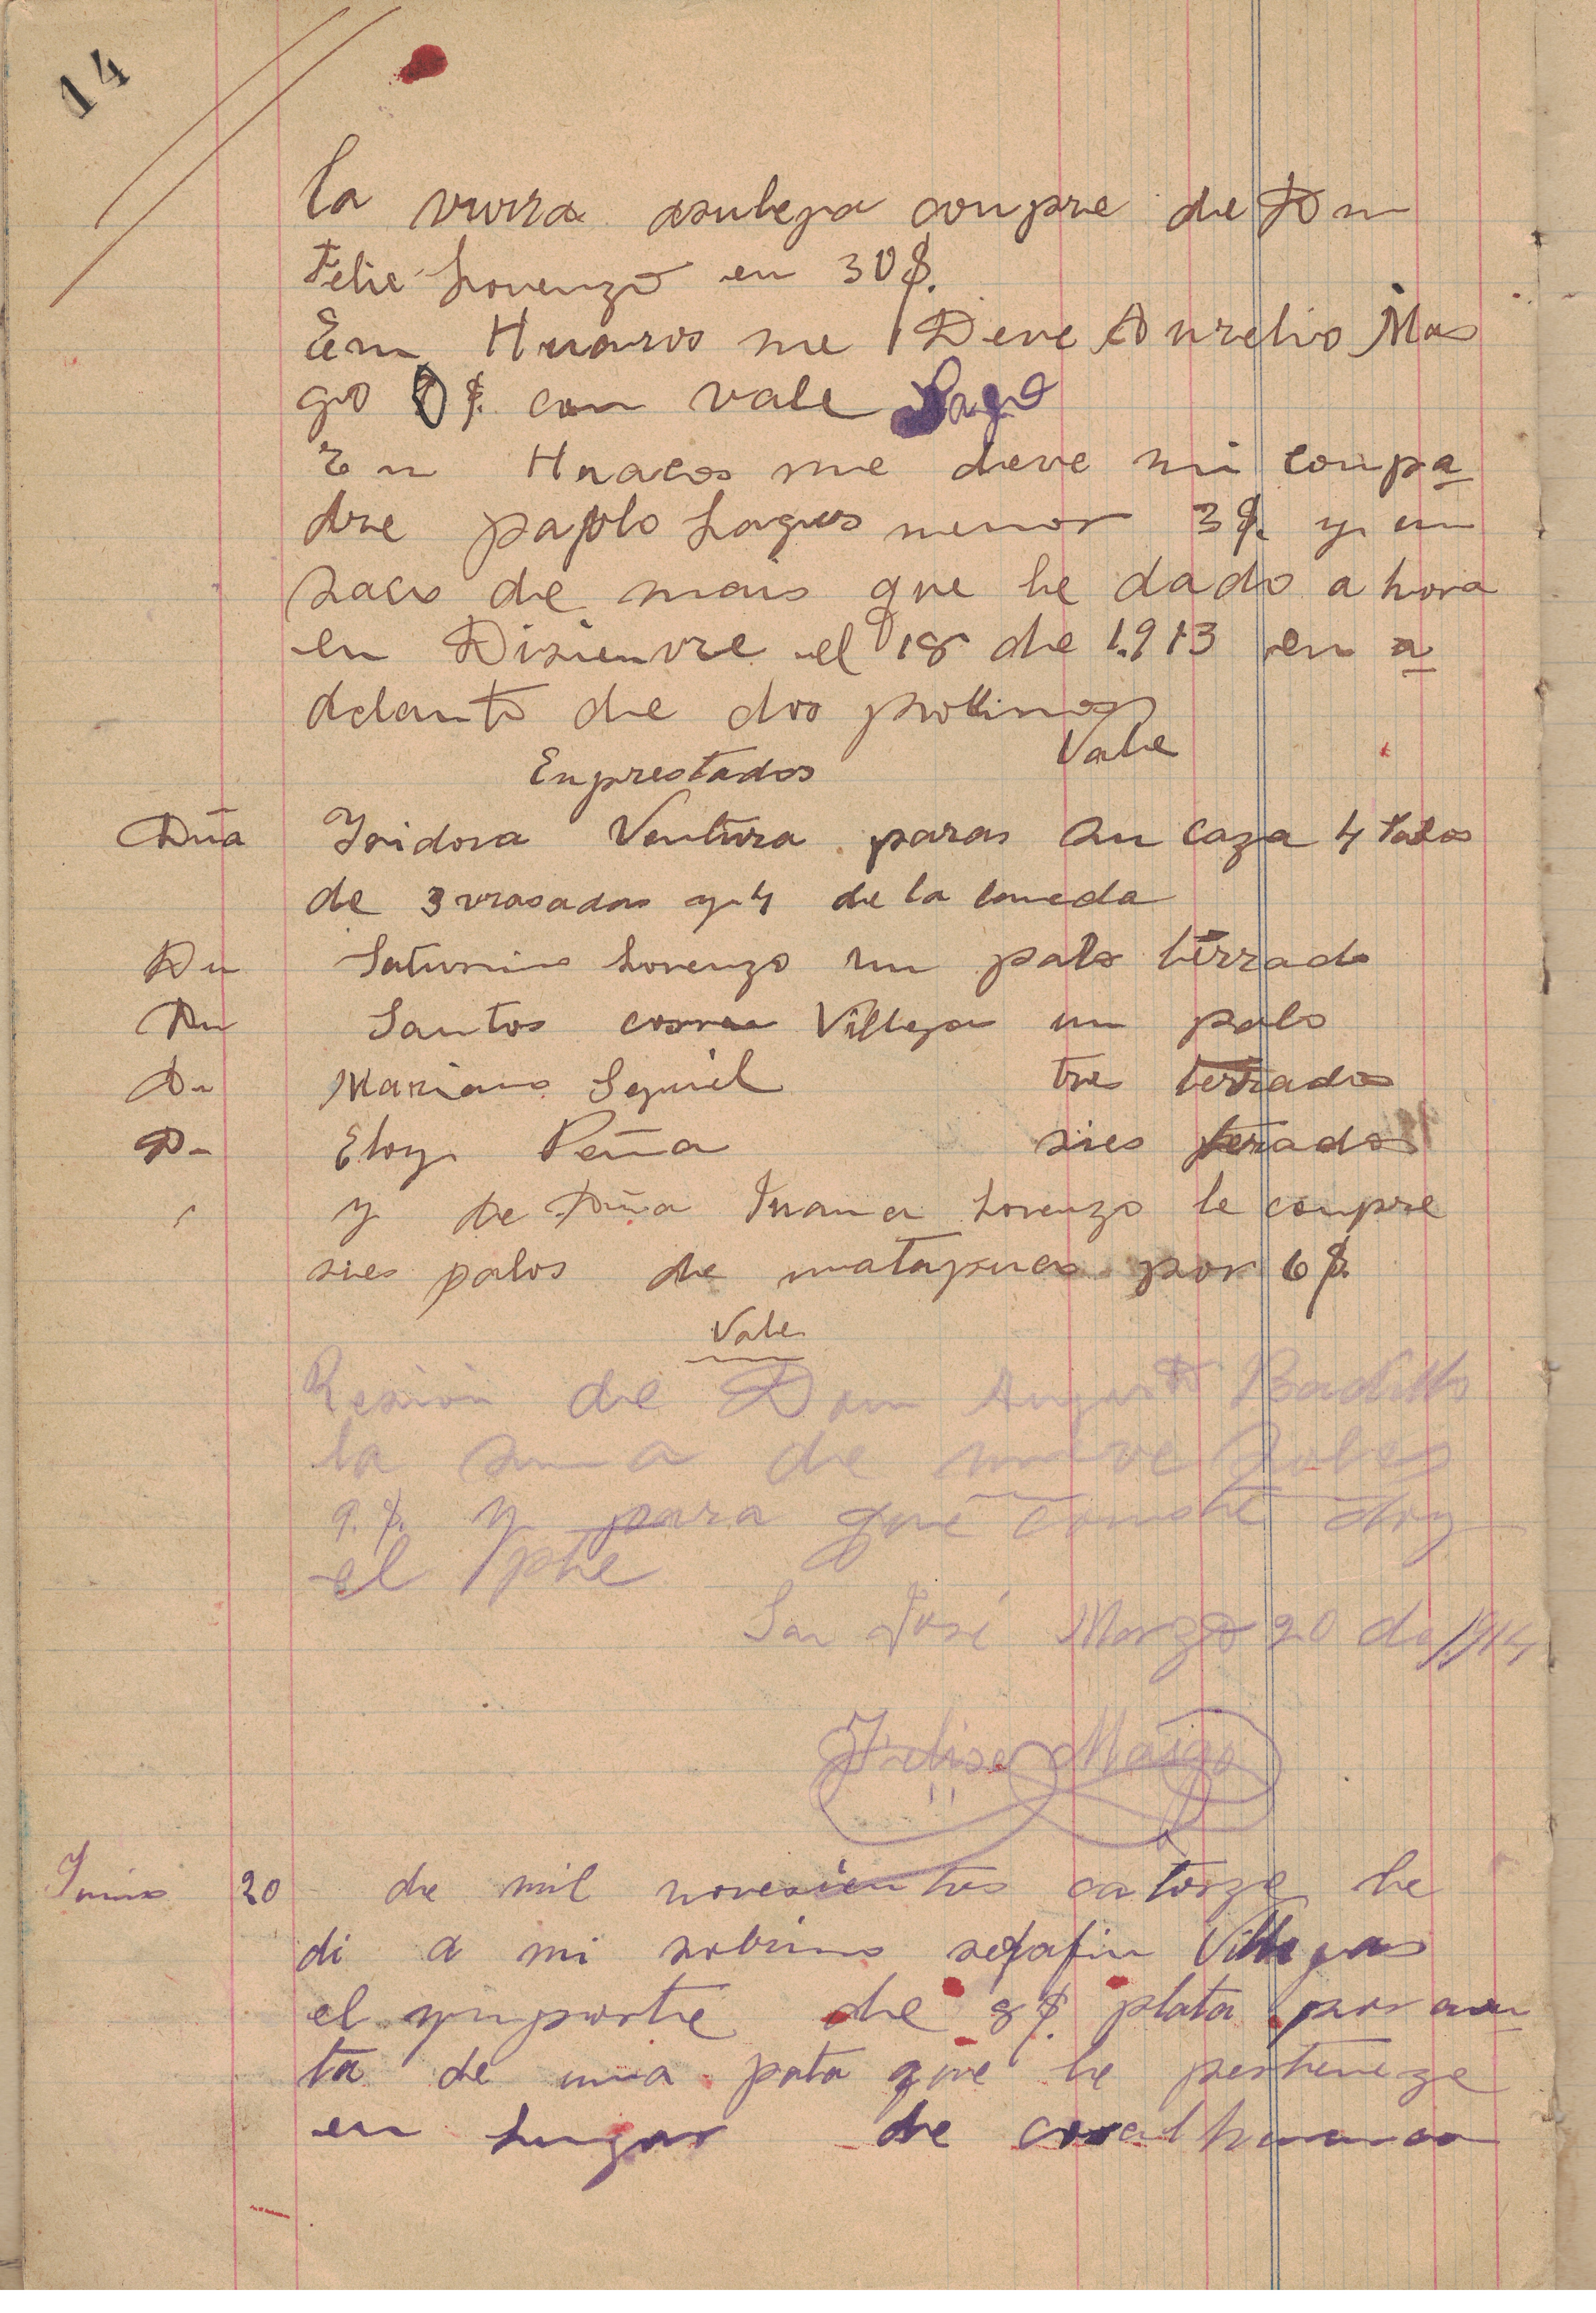 14
la vurra asulega conpre de Dn
Felie Lorenzo en 30 $.
En Huaros me Deve Aurelio Mas
go $. con vale Pago
En Huacos me deve mi conpa
dre paplo Lagus menor 3 $. y un
saco de mais que he dado ahora
en Disienvre el 18 de 1.913 en a
delanto de dos pollinos
Vale
Enprestados
Dña Isidora Ventura paras su caza 4 palos
de 3 vrasadas y 4 de la
Dn Saturnino Lorenzo un palo terrado
Dn Santos Villega un palo
Dn Mariano Seguil tres terrados
Dn Eloy Peña sies terados
y de Dña Juana Lorenzo le conpre
sies palos de por 6 $.
Vale
Resivi de Don Augusto Badillo
la suma de nueve soles
9. $. y para que conste doy
el pte
San José Marzo 20 de 1914
Felisa Maigo
Junio 20 de mil novesientos catorze le
di a mi sobrino sefafin Villegas
el ynporte de 8 $. plata por cuen
ta de una pata que le perteneze
en lugar de coral